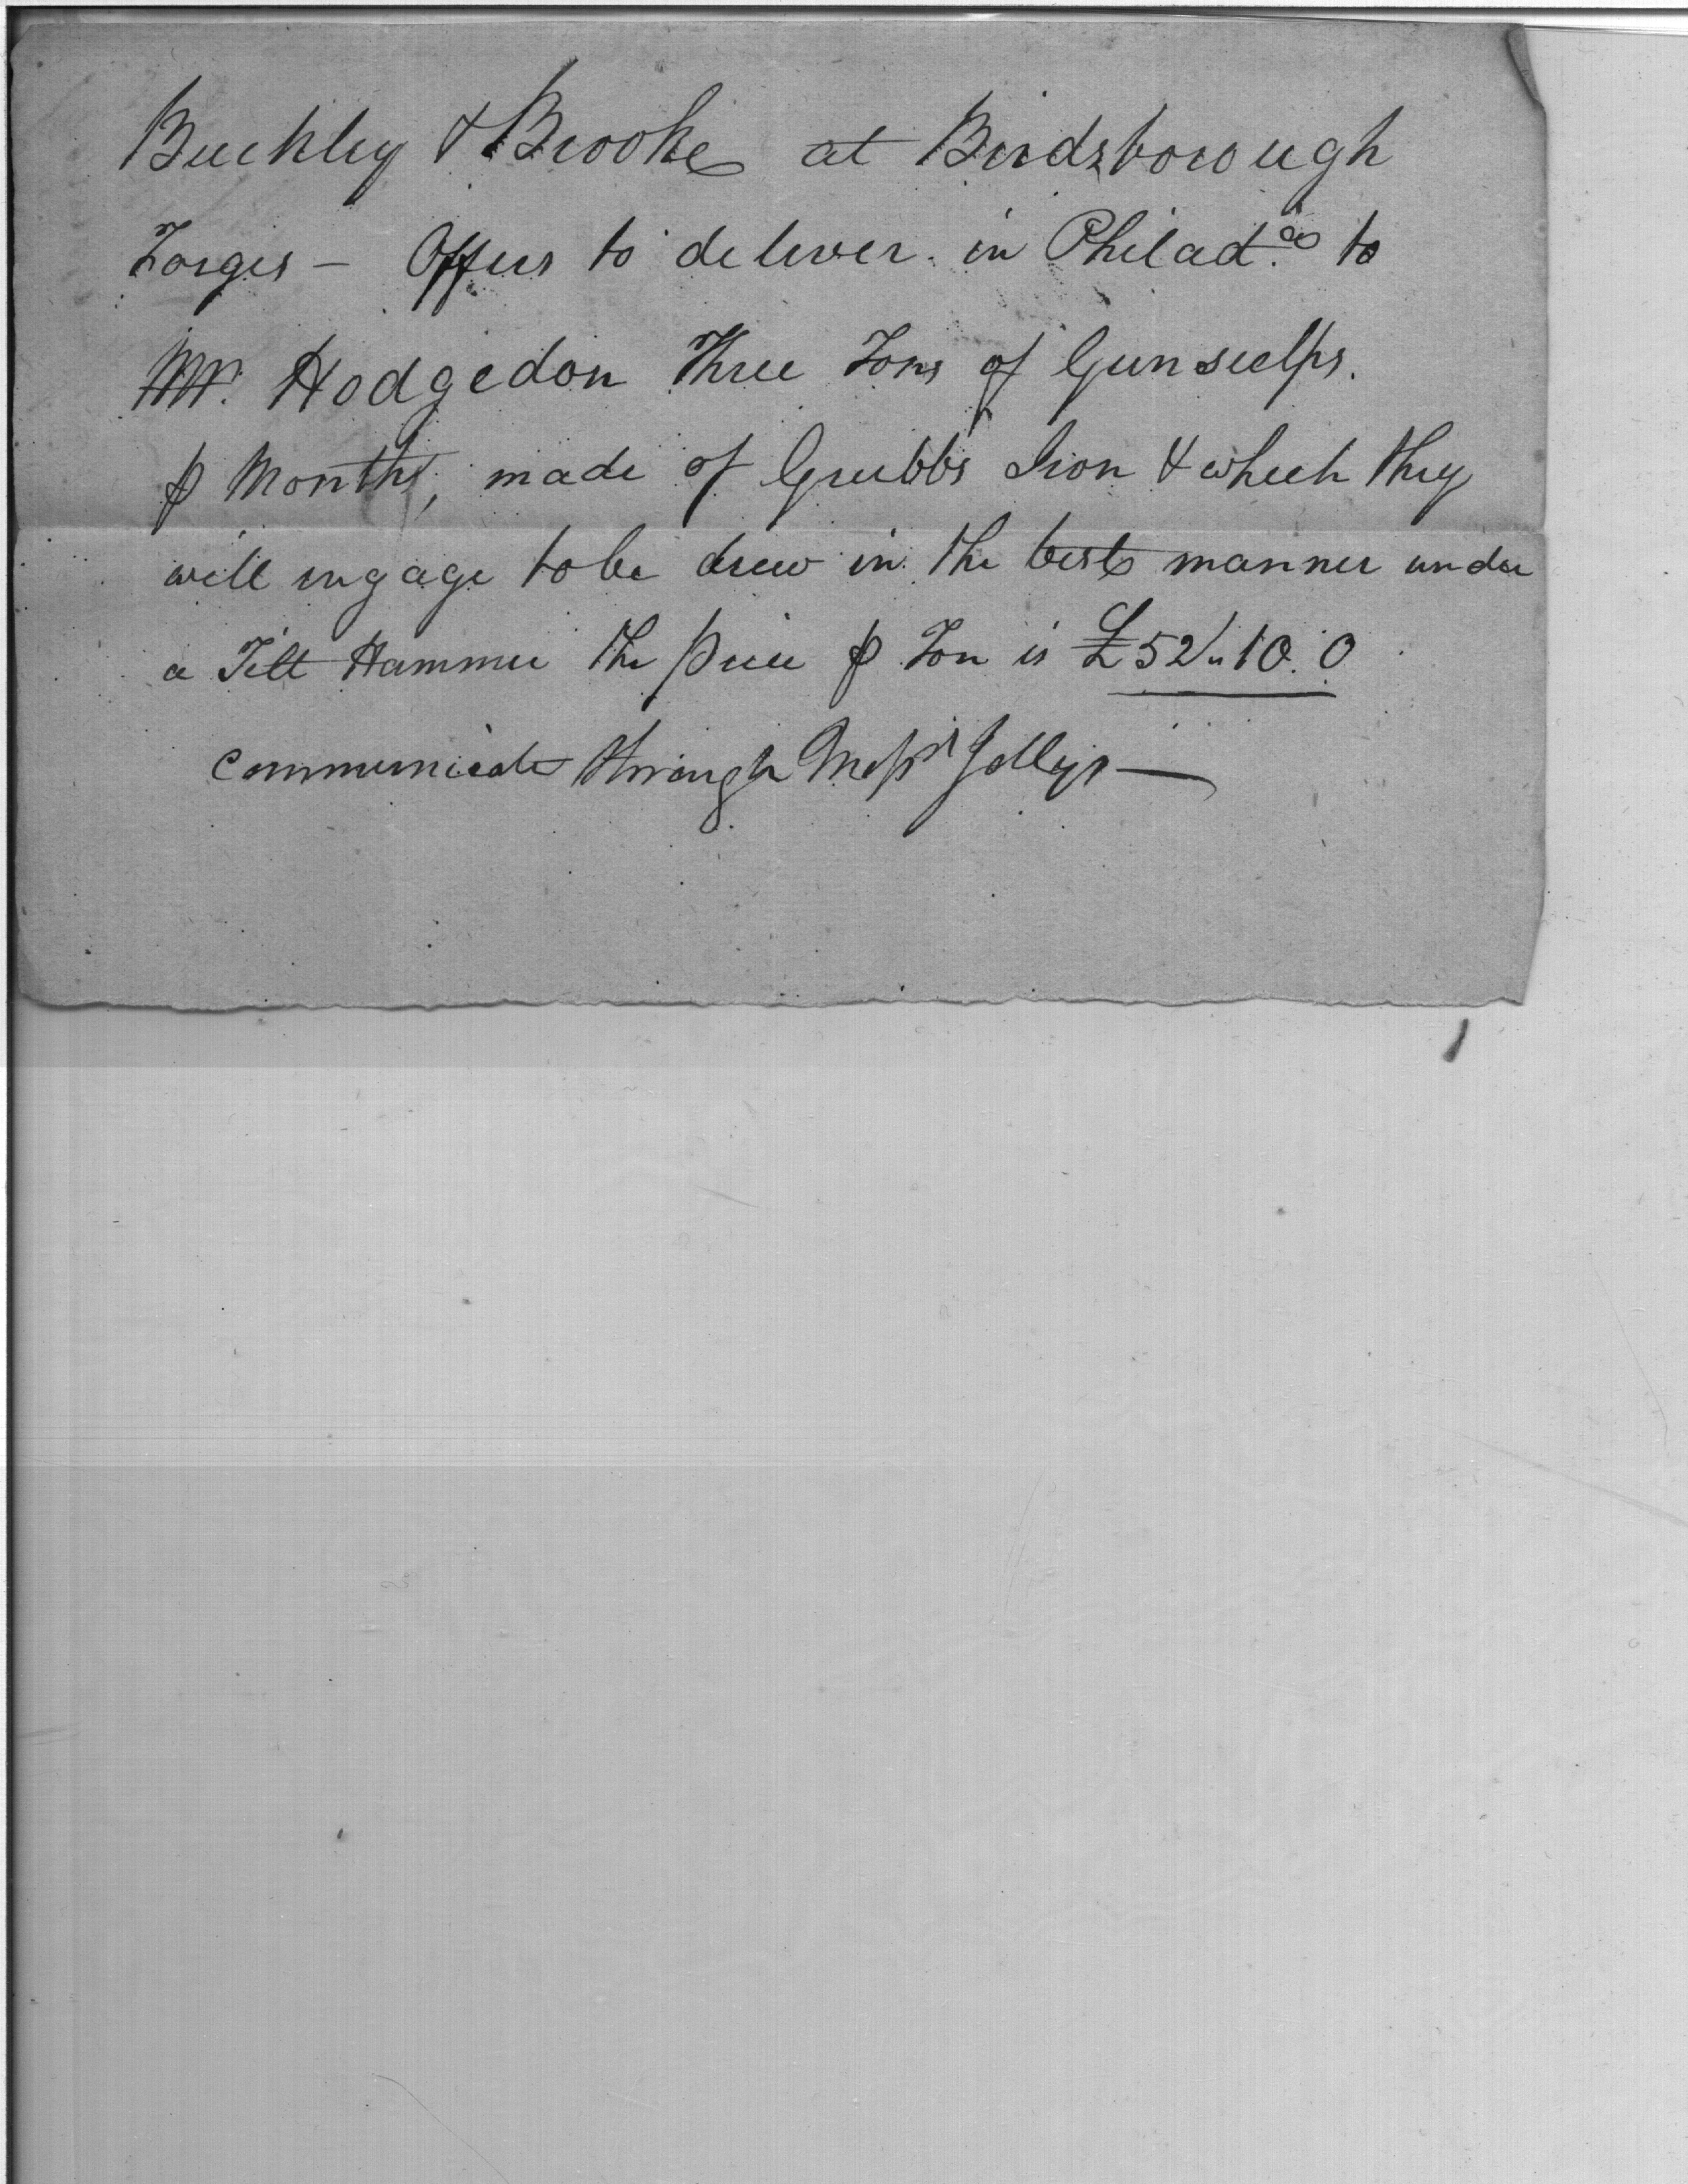 Buckley & Brooke at Birdsborough
Forges – Offers to deliver in Philad.a to
Mr. Hodgedon Three Tons of Gunscelps.
⅌ Month, made of Grubbs Iron & which they
will engage to be drew in the best manner under
a Tilt Hammer the price ⅌ Ton is £52"10.0
Communicate through Messrs